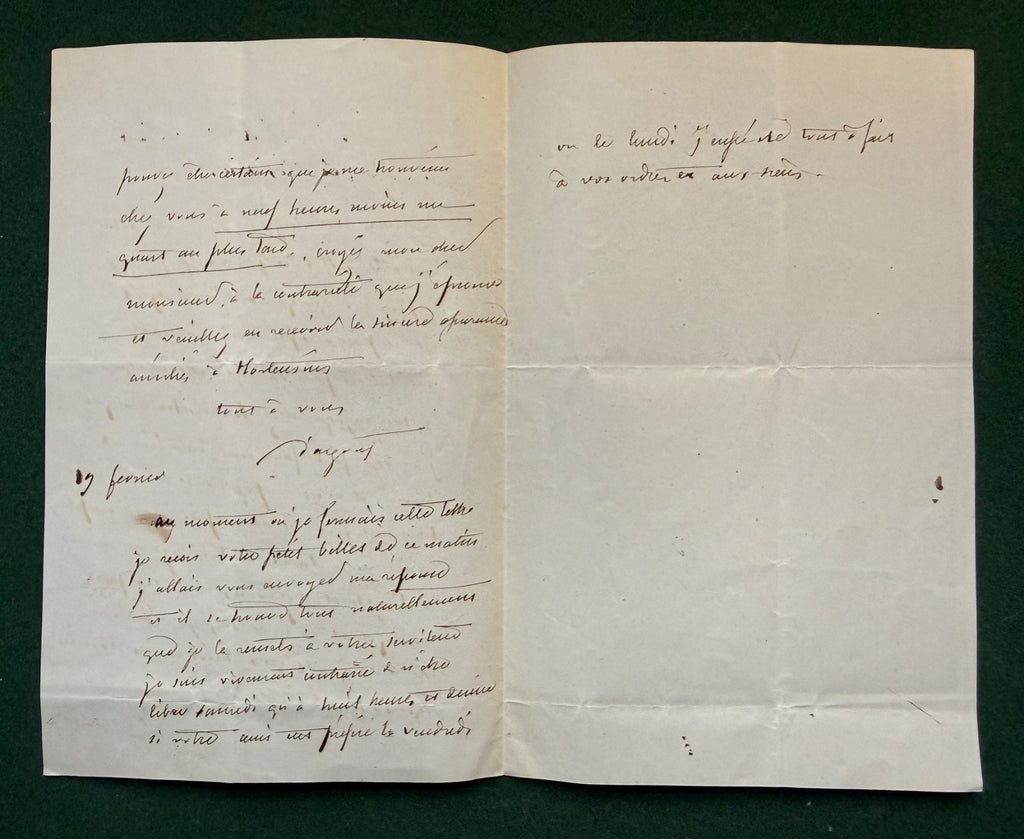 pouvez être certain que je me trouverai
chez vous à neuf heures moins un
quart au plus tard. croyez mon cher
monsieur, à la contrariété que j'éprouve
et veuillez en recevoir la sincère
amitiés à Hortensius
tout à vous
d'argout
19 fevrier
au moment où je fermais cette lettre
je reçois votre petit billet de ce matin
j'allais vous envoyer ma réponse
et il se trouve tout naturellement
que je la remets à votre serviteur
je suis vivement contrarié de n'être
libre samedi qu'à huit heures et demie
si votre ami eut préféré le vendredi
ou le lundi j'eusse été tout à fait
à vos ordres et aux siens.